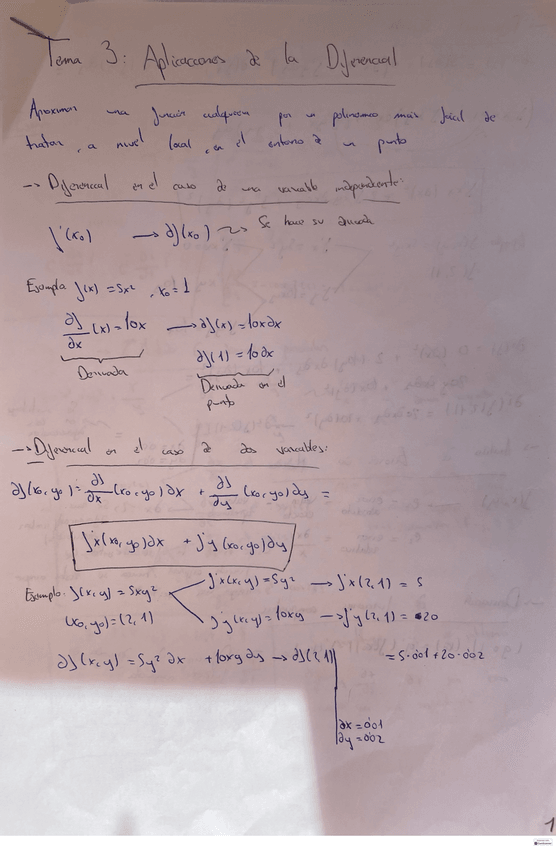 Tema 3: Aplicaciones de la Diferencial
Aproximar una función cualquiera por un polinomio más fácil de
tratar, a nivel local, en el entorno de un punto
-> Diferencial en el caso de una variable independiente:
f'(x₀) -> ∂f(x₀) ~> Se hace su derivada
Ejemplo f(x) = 5x² , x₀ = 1
∂f/∂x (x) = 10x -> ∂f(x) = 10x∂x
∂f(1) = 10∂x
Derivada
Derivada en el
punto
-> Diferencial en el caso de dos variables:
∂f(x₀, y₀) = ∂f/∂x (x₀, y₀)∂x + ∂f/∂y (x₀, y₀)∂y =
f'x(x₀, y₀)∂x + f'y(x₀, y₀)∂y
Ejemplo: f(x, y) = 5xy² f'x(x, y) = 5y² -> f'x(2, 1) = 5
(x₀, y₀) = (2, 1) f'y(x, y) = 10xy -> f'y(2, 1) = 20
∂f(x, y) = 5y²∂x + 10xy∂y -> ∂f(2, 1) = 5·0'01 + 20·0'02
∂x = 0'01
∂y = 0'02
1